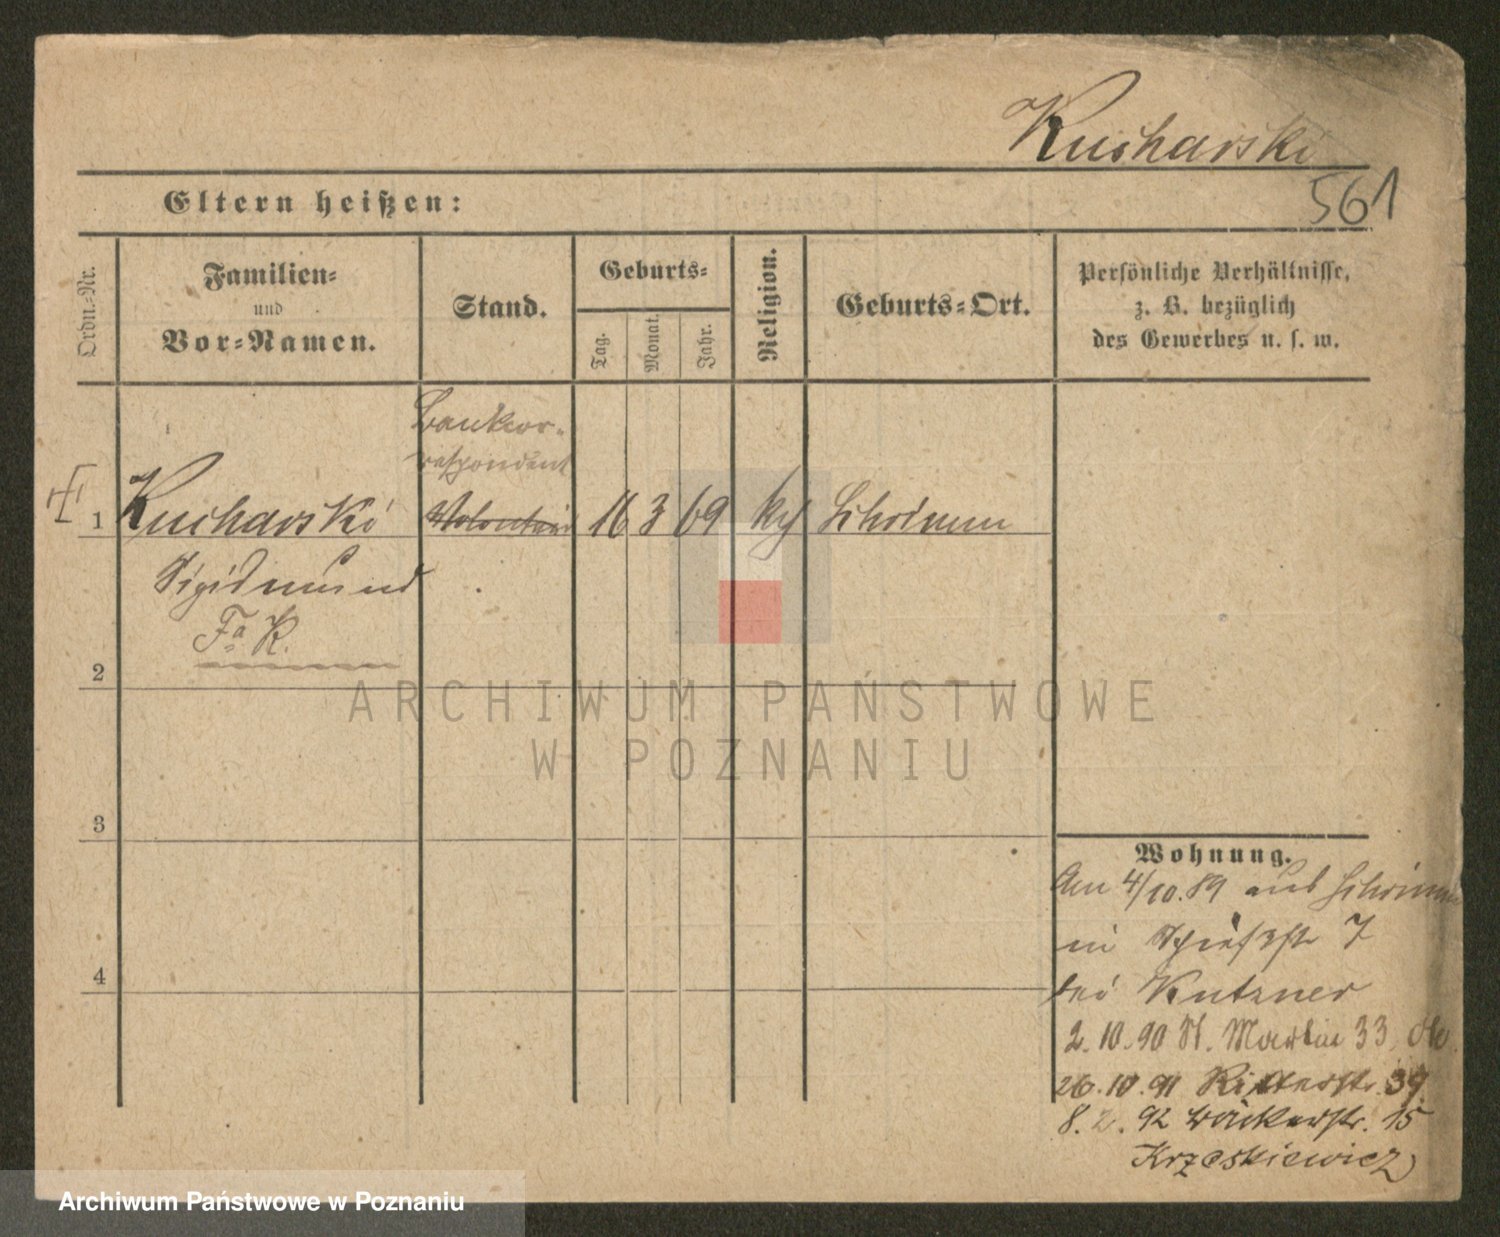 Kucharski
561
Eltern heißen:
Ordn.-Nr.
Familien-
und
Vor-Namen.
Stand.
Geburts-
Tag.
Monat.
Jahr.
Religion.
Geburts-Ort.
Persönliche Verhältnisse,
z. B. bezüglich
des Gewerbes u. s. w.
Bankcor-
respondent
1 Kucharski Volontair 16 3 69 kth Schrimm
Sigismund
Fa. K.
2
ARCHIWUM PAŃSTWOWE
W POZNANIU
3
Wohnung.
Am 4/10. 89 aus Schrimm
in Schießstr 7
4
bei Kutzner
2. 10. 90 St. Martin 33
26. 10. 91 Ritterstr. 39
8. 2. 92 Bäckerstr. 15
Krzeskiewicz
Archiwum Państwowe w Poznaniu